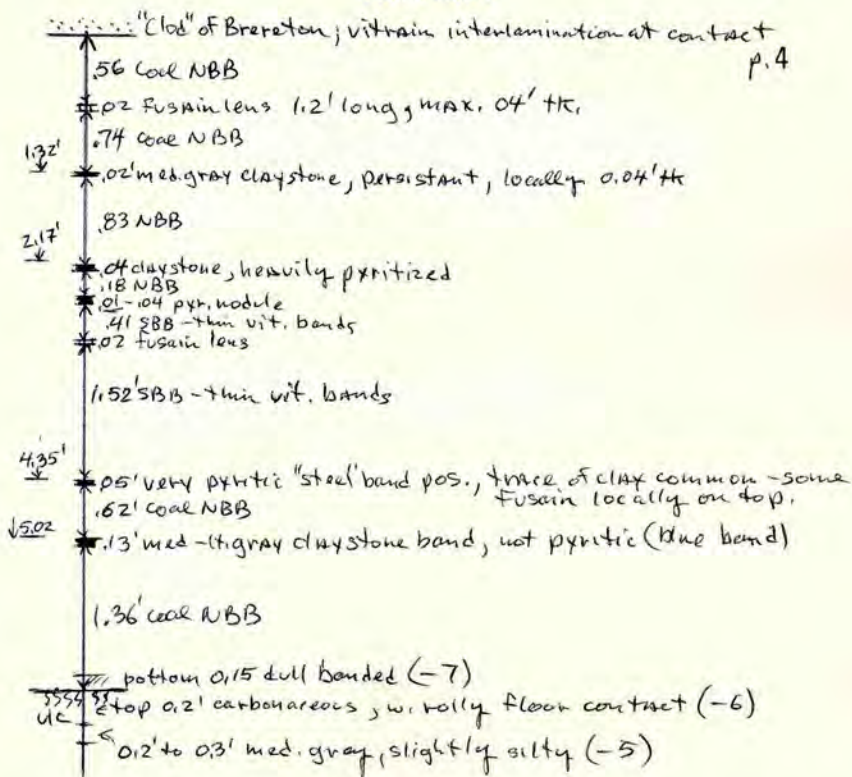 "Clod" of Brereton; vitrain interlamination at contact
p.4
.56 Coal NBB
.02 Fusain lens 1.2' long, max. 04' tk.
.74 coal NBB
1.32'
.02' med. gray claystone, persistant, locally 0.04' tk
.83 NBB
2.17'
.04 claystone, heavily pyritized
.18 NBB
.01-.04 pyr. nodule
.41 SBB - thin vit. bands
.02 fusain lens
1.52' SBB - thin vit. bands
4.35'
.05' very pyritic "steel" band pos., trace of clay common - some
fusain locally on top.
.62' coal NBB
↓5.02
.13' med-lt. gray claystone band, not pyritic (blue band)
1.36' coal NBB
bottom 0.15 dull banded (-7)
top 0.2' carbonaceous, w. rolly floor contact (-6)
UC
0.2' to 0.3' med. gray, slightly silty (-5)